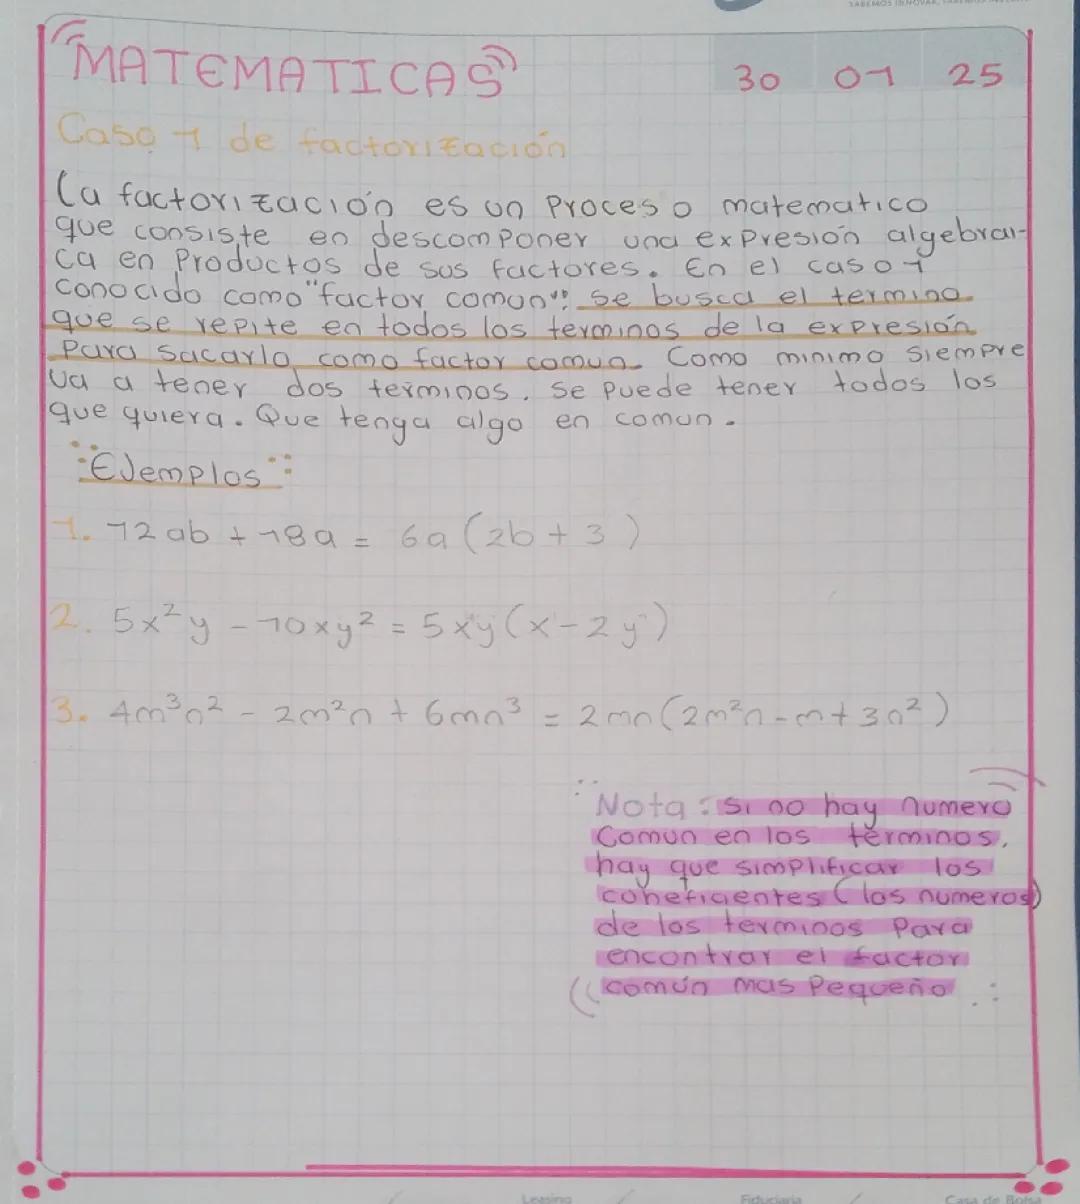 MATEMATICAS
30 01 25
Caso 1 de factorización
La factorización es un proceso matematico
que consiste en descomponer una expresión algebrai-
ca en productos de sus factores. En el caso 1
conocido como "factor comun": se busca el termino
que se repite en todos los terminos de la expresión
para sacarlo como factor comun. Como minimo siempre
va a tener dos terminos, se puede tener todos los
que quiera. Que tenga algo en comun.
Ejemplos
1. 12ab + 18a = 6a(2b + 3)
2. 5x²y - 10xy² = 5xy(x - 2y)
3. 4m³n² - 2m²n + 6mn³ = 2mn(2m²n - m + 3n²)
Nota: si no hay numero
comun en los términos,
hay que simplificar los
cohefigentes (los numeros)
de los terminos para
encontrar el factor
común mas pequeño
Leasing Fiduciaria Casa de Bolsa